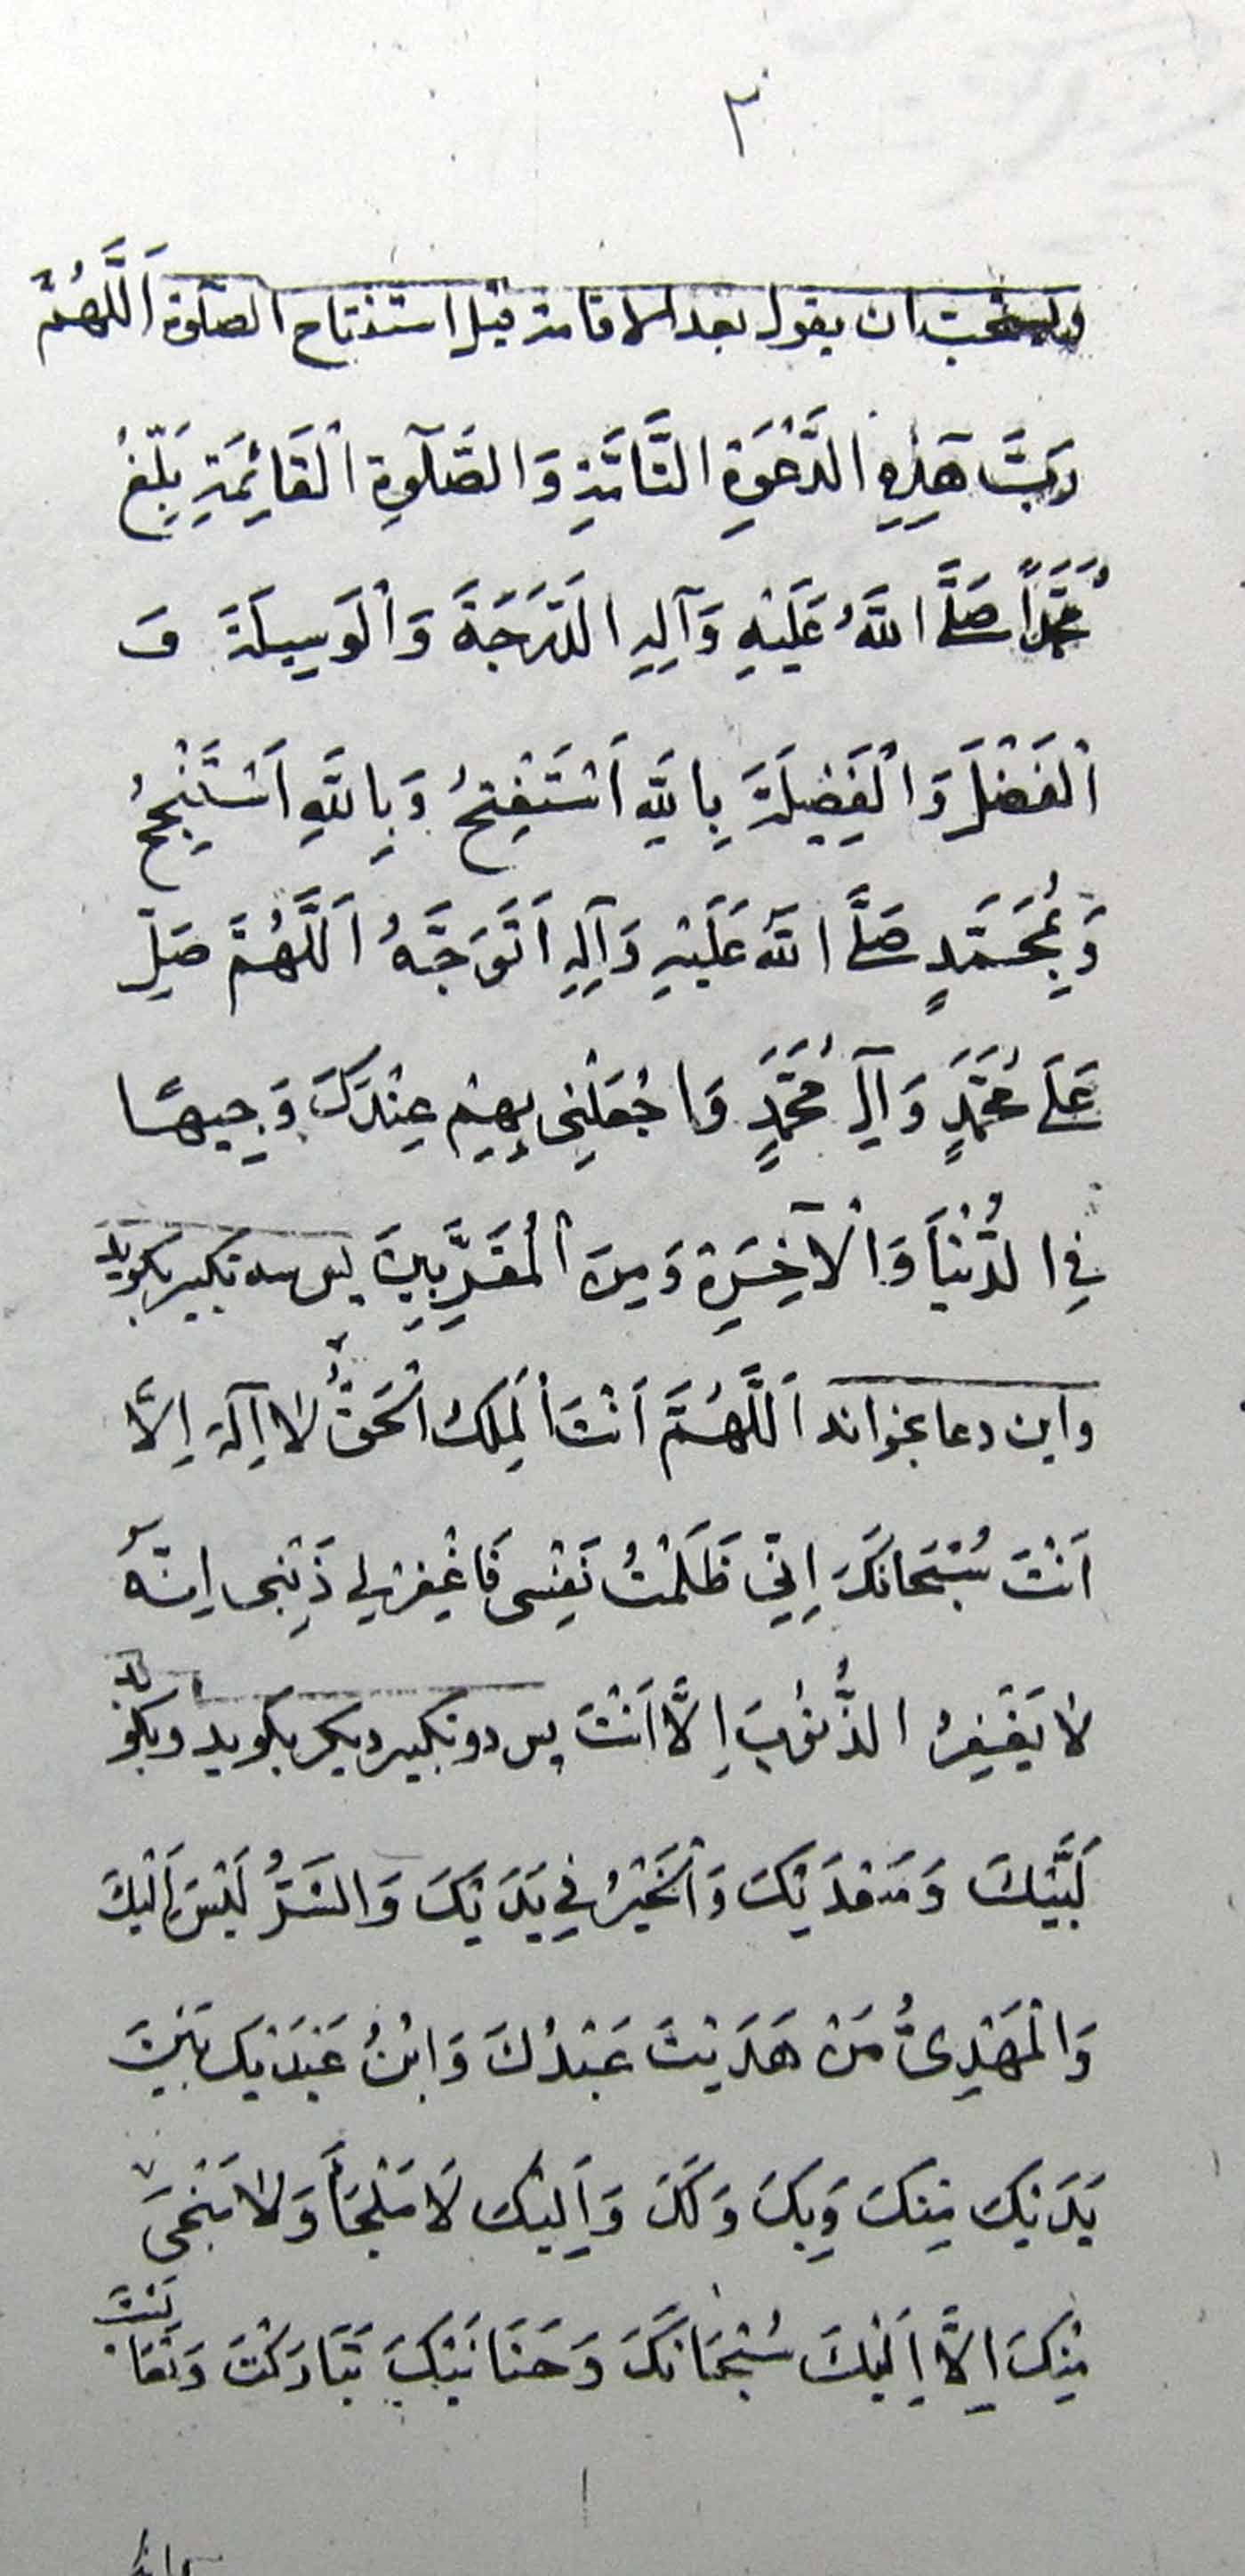 ۳
ویستحب ان یقول بعد الاقامة قبل استفتاح الصلوة اَللَّهُمَّ
رَبَّ هَذِهِ الدَّعْوَةِ التَّامَّةِ وَالصَّلَوةِ الْقَائِمَةِ بَلِّغْ
مُحَمَّداً صَلَّى اللَّهُ عَلَيْهِ وَآلِهِ الدَّرَجَةَ وَالْوَسِيلَةَ وَ
الْفَضْلَ وَالْفَضِيلَةَ بِاللَّهِ اَسْتَفْتِحُ وَبِاللَّهِ اَسْتَنْجِحُ
وَبِمُحَمَّدٍ صَلَّى اللَّهُ عَلَيْهِ وَآلِهِ اَتَوَجَّهُ اَللَّهُمَّ صَلِّ
عَلَى مُحَمَّدٍ وَآلِ مُحَمَّدٍ وَاجْعَلْنِى بِهِمْ عِنْدَكَ وَجِيهًا
فِى الدُّنْيَا وَالْآخِرَةِ وَمِنَ الْمُقَرَّبِينَ پس سه تکبیر بکوید
واین دعا بخواند اَللَّهُمَّ اَنْتَ الْمَلِكُ الْحَقُّ لَا اِلَهَ اِلَّا
اَنْتَ سُبْحَانَكَ اِنِّى ظَلَمْتُ نَفْسِى فَاغْفِرْلِى ذَنْبِى اِنَّهُ
لَا يَغْفِرُ الذُّنُوبَ اِلَّا اَنْتَ پس دو تکبیر دیکر بکوید وبکوید
لَبَّيْكَ وَسَعْدَيْكَ وَالْخَيْرُ فِى يَدَيْكَ وَالشَّرُّ لَيْسَ اِلَيْكَ
وَالْمَهْدِىُّ مَنْ هَدَيْتَ عَبْدُكَ وَابْنُ عَبْدَيْكَ بَيْنَ
يَدَيْكَ مِنْكَ وَبِكَ وَلَكَ وَاِلَيْكَ لَا مَلْجَأَ وَلَا مَنْجَى
مِنْكَ اِلَّا اِلَيْكَ سُبْحَانَكَ وَحَنَانَيْكَ تَبَارَكْتَ وَتَعَالَيْتَ